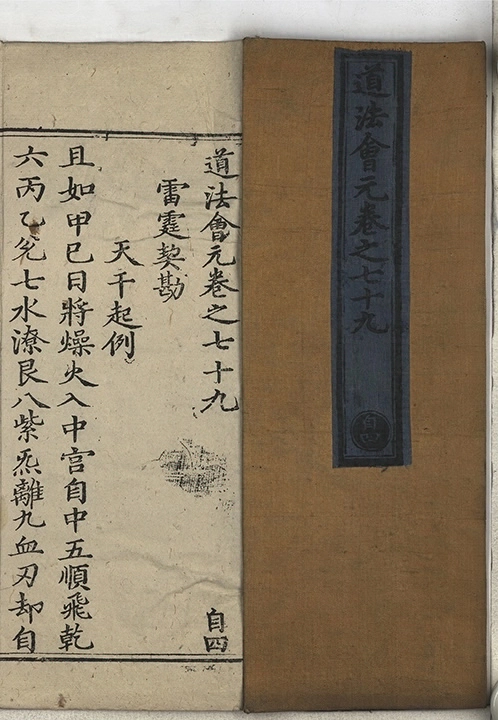 道法會元卷之七十九
自四
道法會元卷之七十九
自四
雷霆契勘
天干起例
且如甲巳日將燥火入中宮自中五順飛乾
六丙乙兊七水潦艮八紫炁離九血刃却自